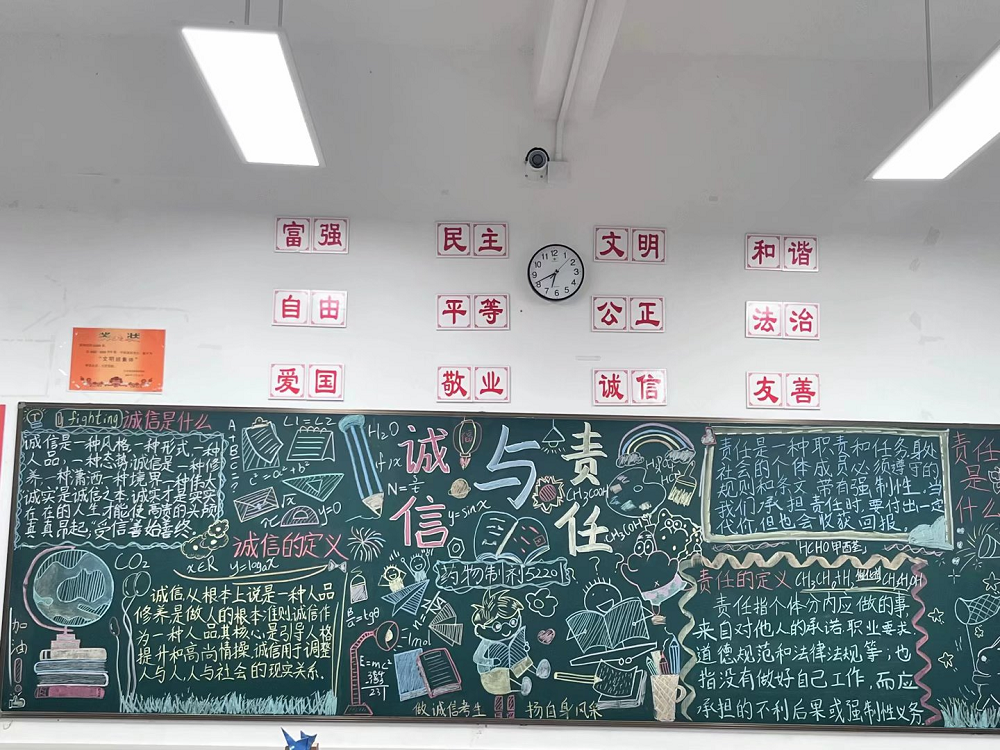 富强
民主
文明
和谐
自由
平等
公正
法治
爱国
敬业
诚信
友善
12
1
2
3
4
5
6
7
8
9
10
11
奖状
"文明班集体"
fighting
诚信是什么
诚信是一种风格,一种形式,一种
人品,一种态势,诚信是一种修
养,一种潇洒,一种境界,一种伟大
诚实是诚信之本,诚实才是实实
在在的人生,才能使高贵的头颅
真真昂起,受信善始善终.
诚信的定义
诚信从根本上说是一种人品
修养是做人的根本准则诚信作
为一种人品其核心是引导人格
提升和高尚情操,诚信用于调整
人与人,人与社会的现实关系.
加油
CO2
x∈R y=logax
A+B+C
L1=L2
H2O
y=0
y=sinx
N=
E=mc²
tgθ
1mol
诚信
与
责任
CH3COOH
药物制剂5220班
做诚信考生
扬自身风采
责任是一种职责和任务身处
社会的个体成员必须遵守的
规则和条文,带有强制性.当
我们承担责任时,要付出一定
代价,但也会收获回报.
HCHO甲醛
责任的定义
责任指个体分内应做的事,
来自对他人的承诺,职业要求,
道德规范和法律法规等;也
指没有做好自己工作,而应
承担的不利后果或强制性义务
责任是什么